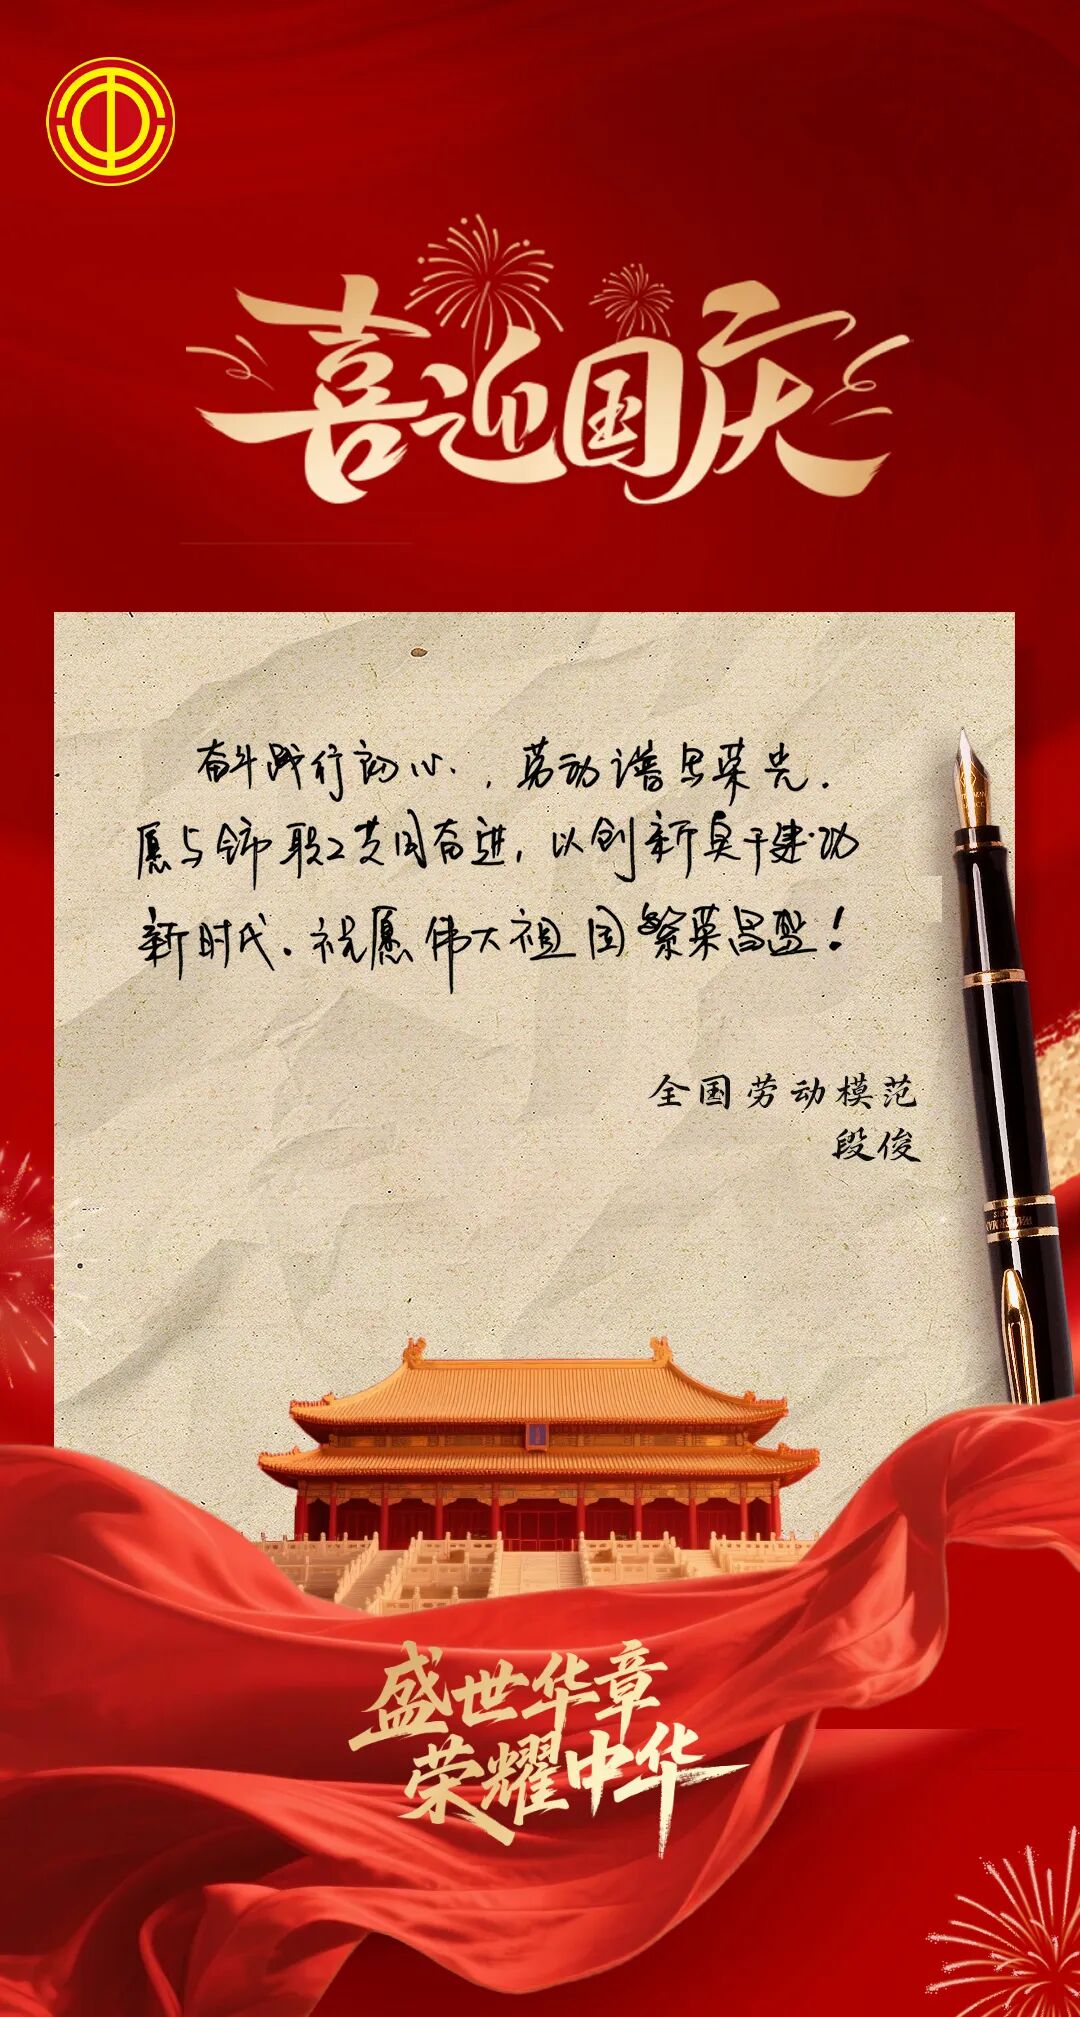 喜迎国庆
奋斗践行初心，劳动谱写荣光.
愿与饰职工共同奋进,以创新实干建功
新时代.祝愿伟大祖国繁荣昌盛!
全国劳动模范
段俊
盛世华章
荣耀中华